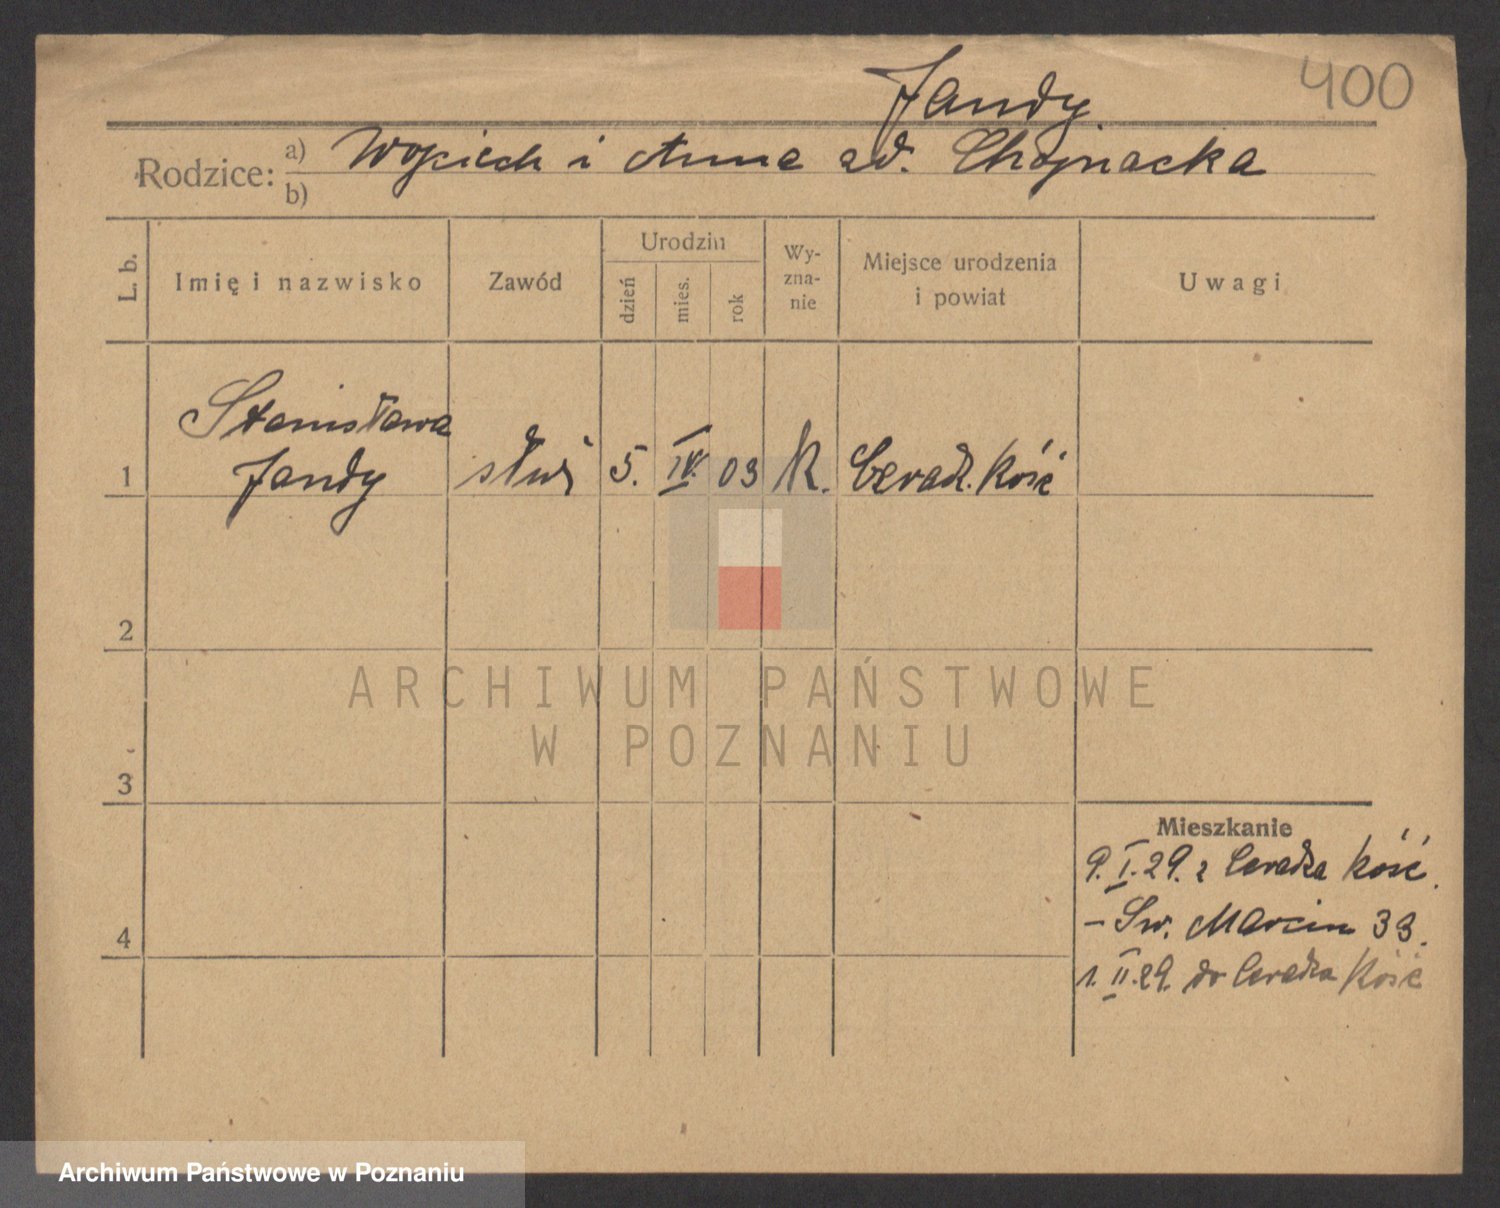 400
Jandy
Rodzice: a) Wojciech i Anna zd. Chojnacka
b)
L. b. Imię i nazwisko Zawód Urodzin dzień mies. rok Wyznanie Miejsce urodzenia i powiat Uwagi
Stanisława
1 Jandy służ 5. IV. 03 k. Ceradz. Kość
2
ARCHIWUM PAŃSTWOWE
W POZNANIU
3
Mieszkanie
9. I. 29. z Ceradza Kość.
4 – Św. Marcin 33.
1. II. 29. do Ceradza Kość
Archiwum Państwowe w Poznaniu